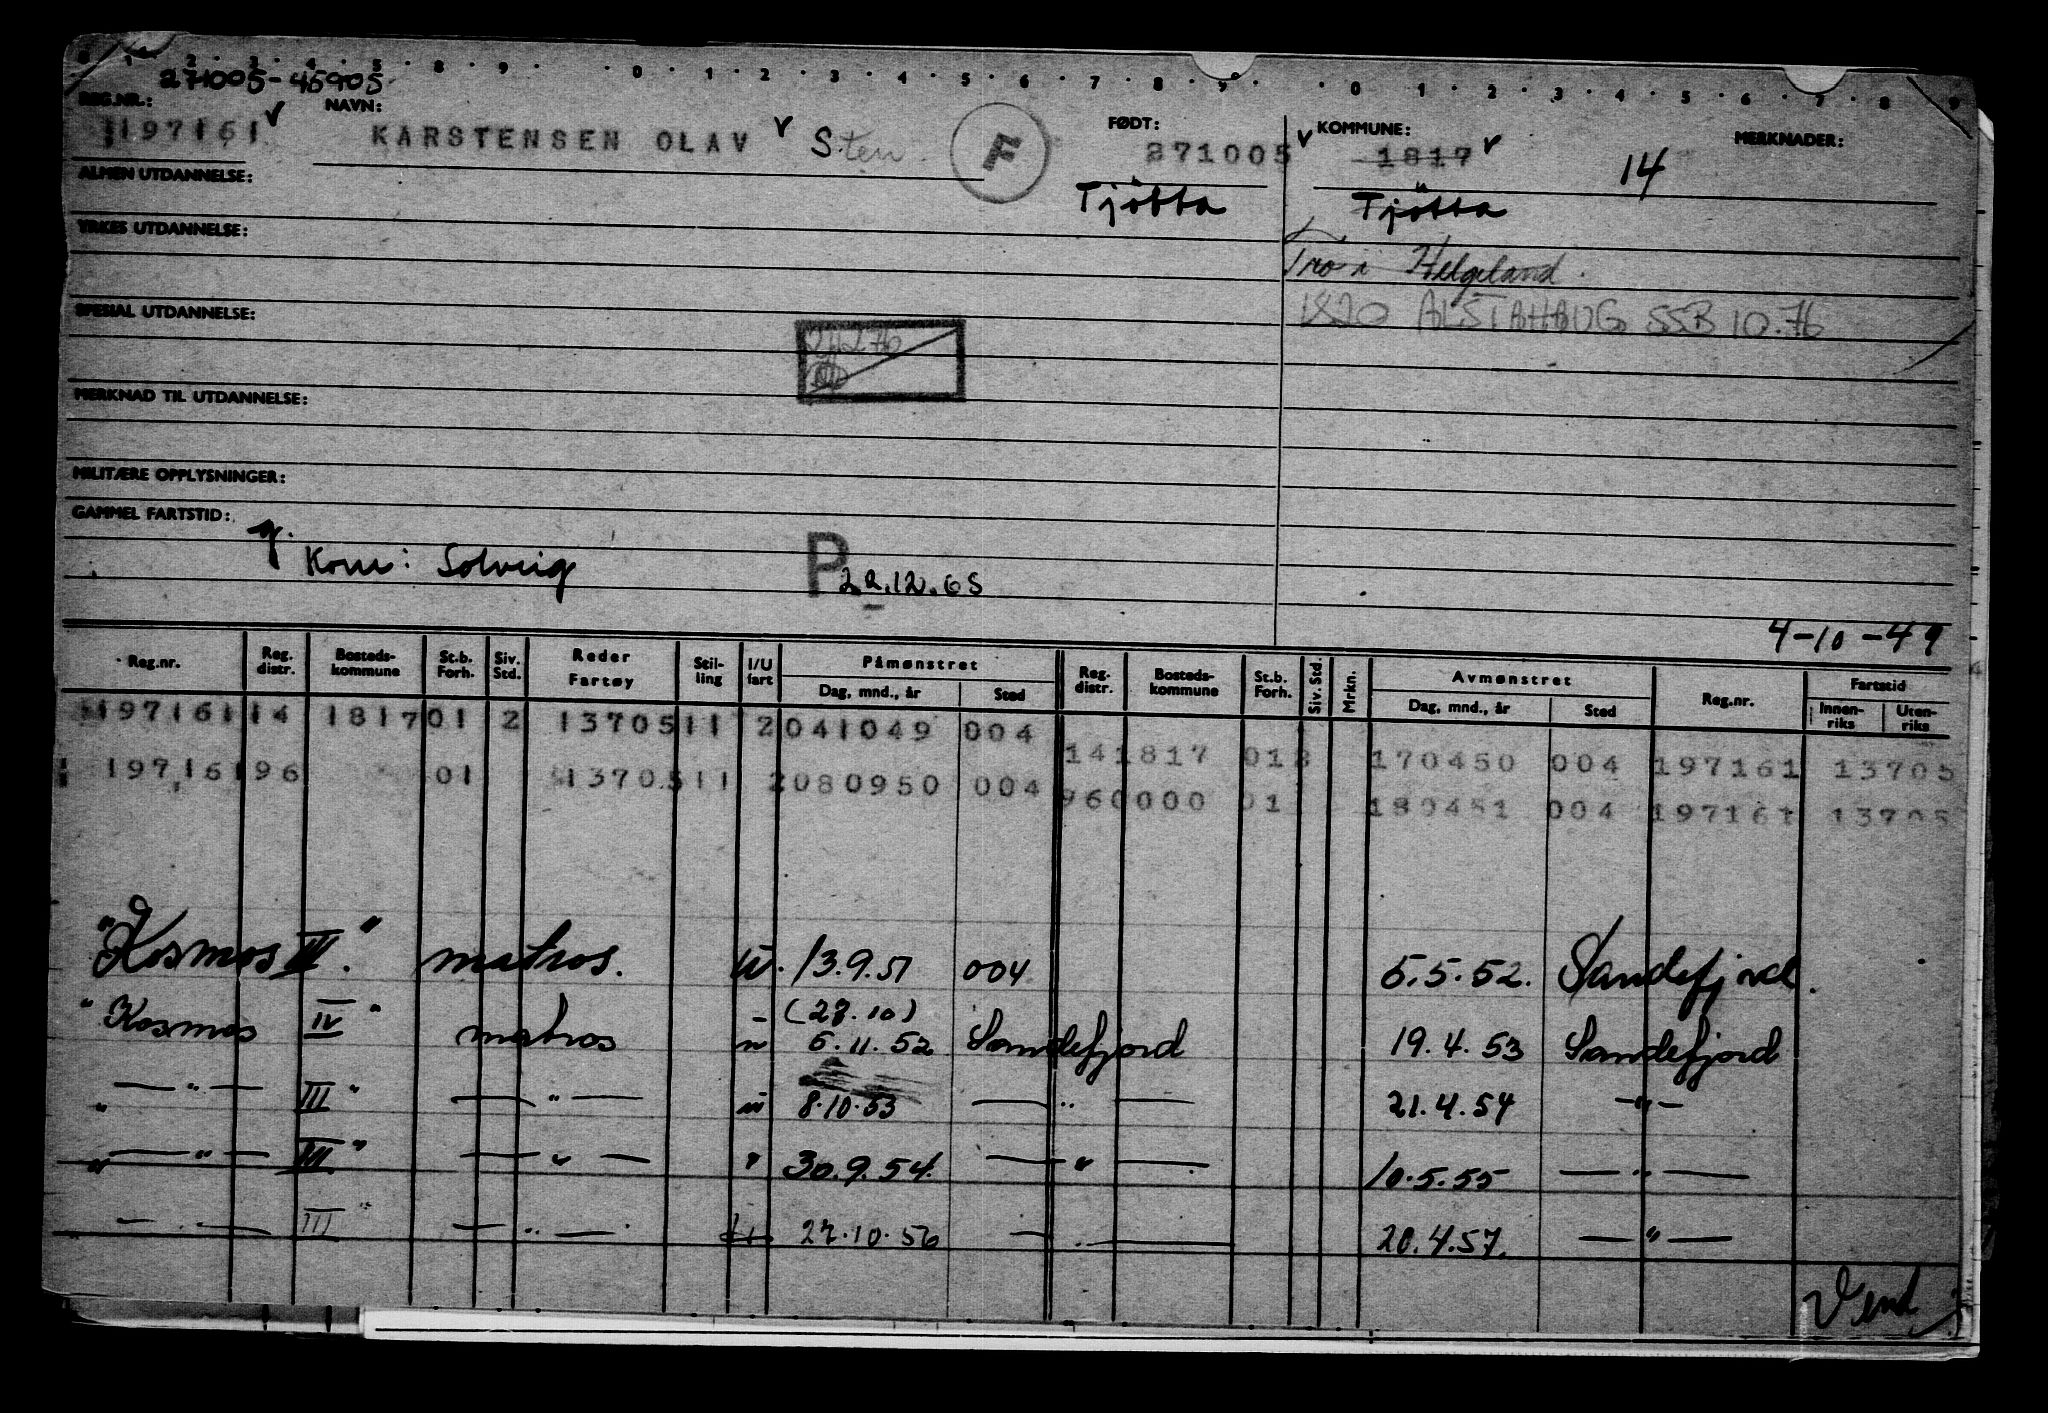 0 1 2 3 4 5 8 9 0 1 2 3 4 5 6 7 8 9 0 1 2 3 4 5 6 7 8 9
271005-45905
REG.NR.: NAVN: FØDT: KOMMUNE: MERKNADER:
197161 KARSTENSEN OLAV Sten F 271005 1817 14
ALMEN UTDANNELSE: Tjötta Tjötta
YRKES UTDANNELSE:
Tro i Helgeland.
SPESIAL UTDANNELSE: 1820 ALSTAHAUG SSB 10.76
MERKNAD TIL UTDANNELSE:
MILITÆRE OPPLYSNINGER:
GAMMEL FARTSTID:
g. Kone: Solveig P 22.12.65
4-10-49
Reg.nr. Reg. distr. Bosteds-kommune St.b. Forh. Siv. Std. Reder Fartøy Stil-ling I/U fart Påmønstret Dag, mnd., år Sted Reg. distr. Bosteds-kommune St.b. Forh. Siv. Std. Mrkn. Avmønstret Dag, mnd., år Sted Reg.nr. Fartstid Innen-riks Uten-riks
197161 14 1817 01 2 13705 11 2 041049 004
14 1817 01 170450 004 197161 13705
197161 96 01 13705 11 2 080950 004
96 0000 01 180451 004 197161 13705
"Kosmos III." matros. U. 13.9.51 004 5.5.52. Sandefjord.
"Kosmos IV" matros (28.10) 5.11.52 Sandefjord 19.4.53 Sandefjord
" — " — III " — " — 8.10.53 — " — 21.4.54 — " —
" — " — III " — " — " 30.9.54. — " — 10.5.55 — " —
— " — III " — " — 27.10.56 — " — 20.4.57. — " —
Vend